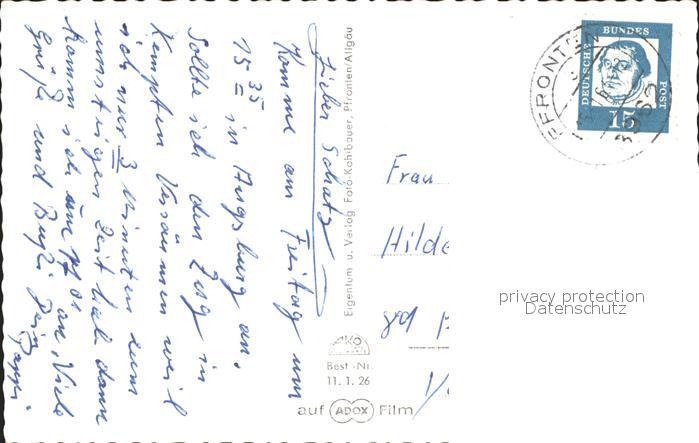 Lieber Schatz
Komme am Freitag um
15 35 in Augsburg an.
Sollte ich den Zug in
Kempten Versäumen weil
ich nur 3 Minuten zum
umsteigen Zeit hab dann
komm ich um an, Viele
Grüße und Bußi Dein
Eigentum u. Verlag Foto-Kohlbauer, Pfronten/Allgäu
AKO
Best.-Nr.
11. 1. 26
auf ADOX Film
PFRONTEN
DEUTSCHE
BUNDES
POST
15
Frau
Hilde
privacy protection
Datenschutz